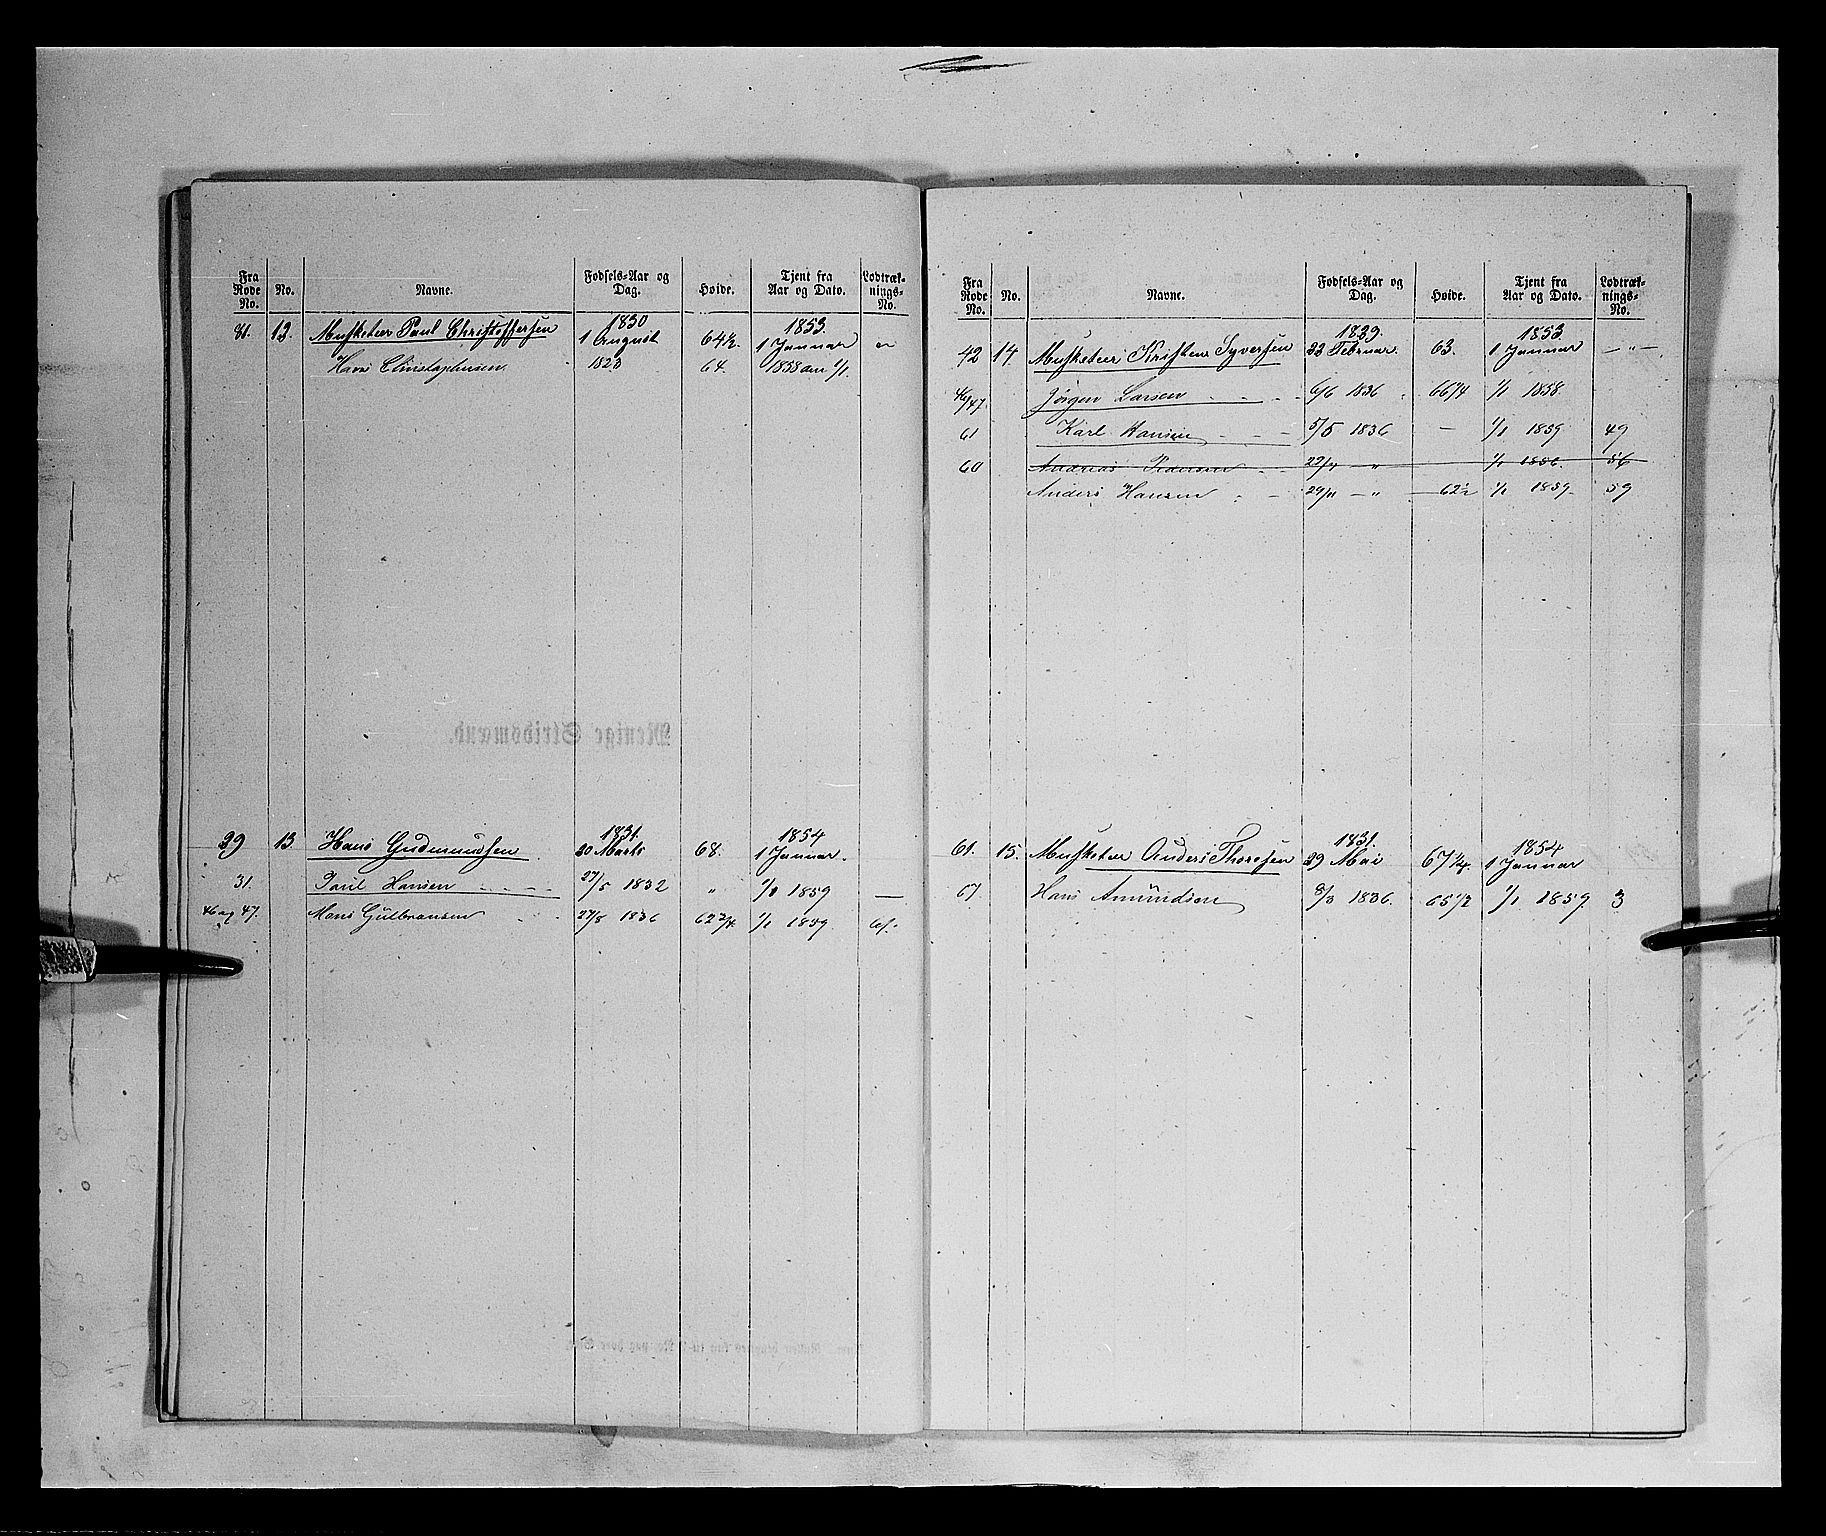 Fra Rode No. No. Navne. Fødsels-Aar og Dag. Høide. Tjent fra Aar og Dato. Lodtræknings-No.
1830 1853
81. 12. Musketeer Paul Christoffersen 1 August 64½. 1 Januar
Hans Christophersen 1828 64. 1858 am 1/1.
Menige Stridsmænd.
1831. 1854
29 13 Hans Gudmundsen 20 Marts 68. 1 Januar.
31. Paul Hansen 27/5 1832 " 1/1 1859 —
46 og 47. Hans Gulbransen 27/8 1836 62 3/4 1/1 1859. 61.
Fra Rode No. No. Navne. Fødsels-Aar og Dag. Høide. Tjent fra Aar og Dato. Lodtræknings-No.
1829. 1853
42 14. Musketeer Kristen Syversen 23 Februar. 63. 1 Januar — " —
46/47. Jörgen Larsen 6/6 1836 66 1/4 1/1 1858.
61 Karl Hansen 5/5 1836 — 1/1 1859 49
60 Andreas Pedersen — " 1/1 56
Anders Hansen 29/11 — " — 62½ 1/1 1859. 59
1831. 1854
61. 15. Musketeer Anders Thoresen 29 Mai 67¼. 1 Januar
67. Hans Amundsen 8/3 1836. 65 1/2 1/1 1859. 3